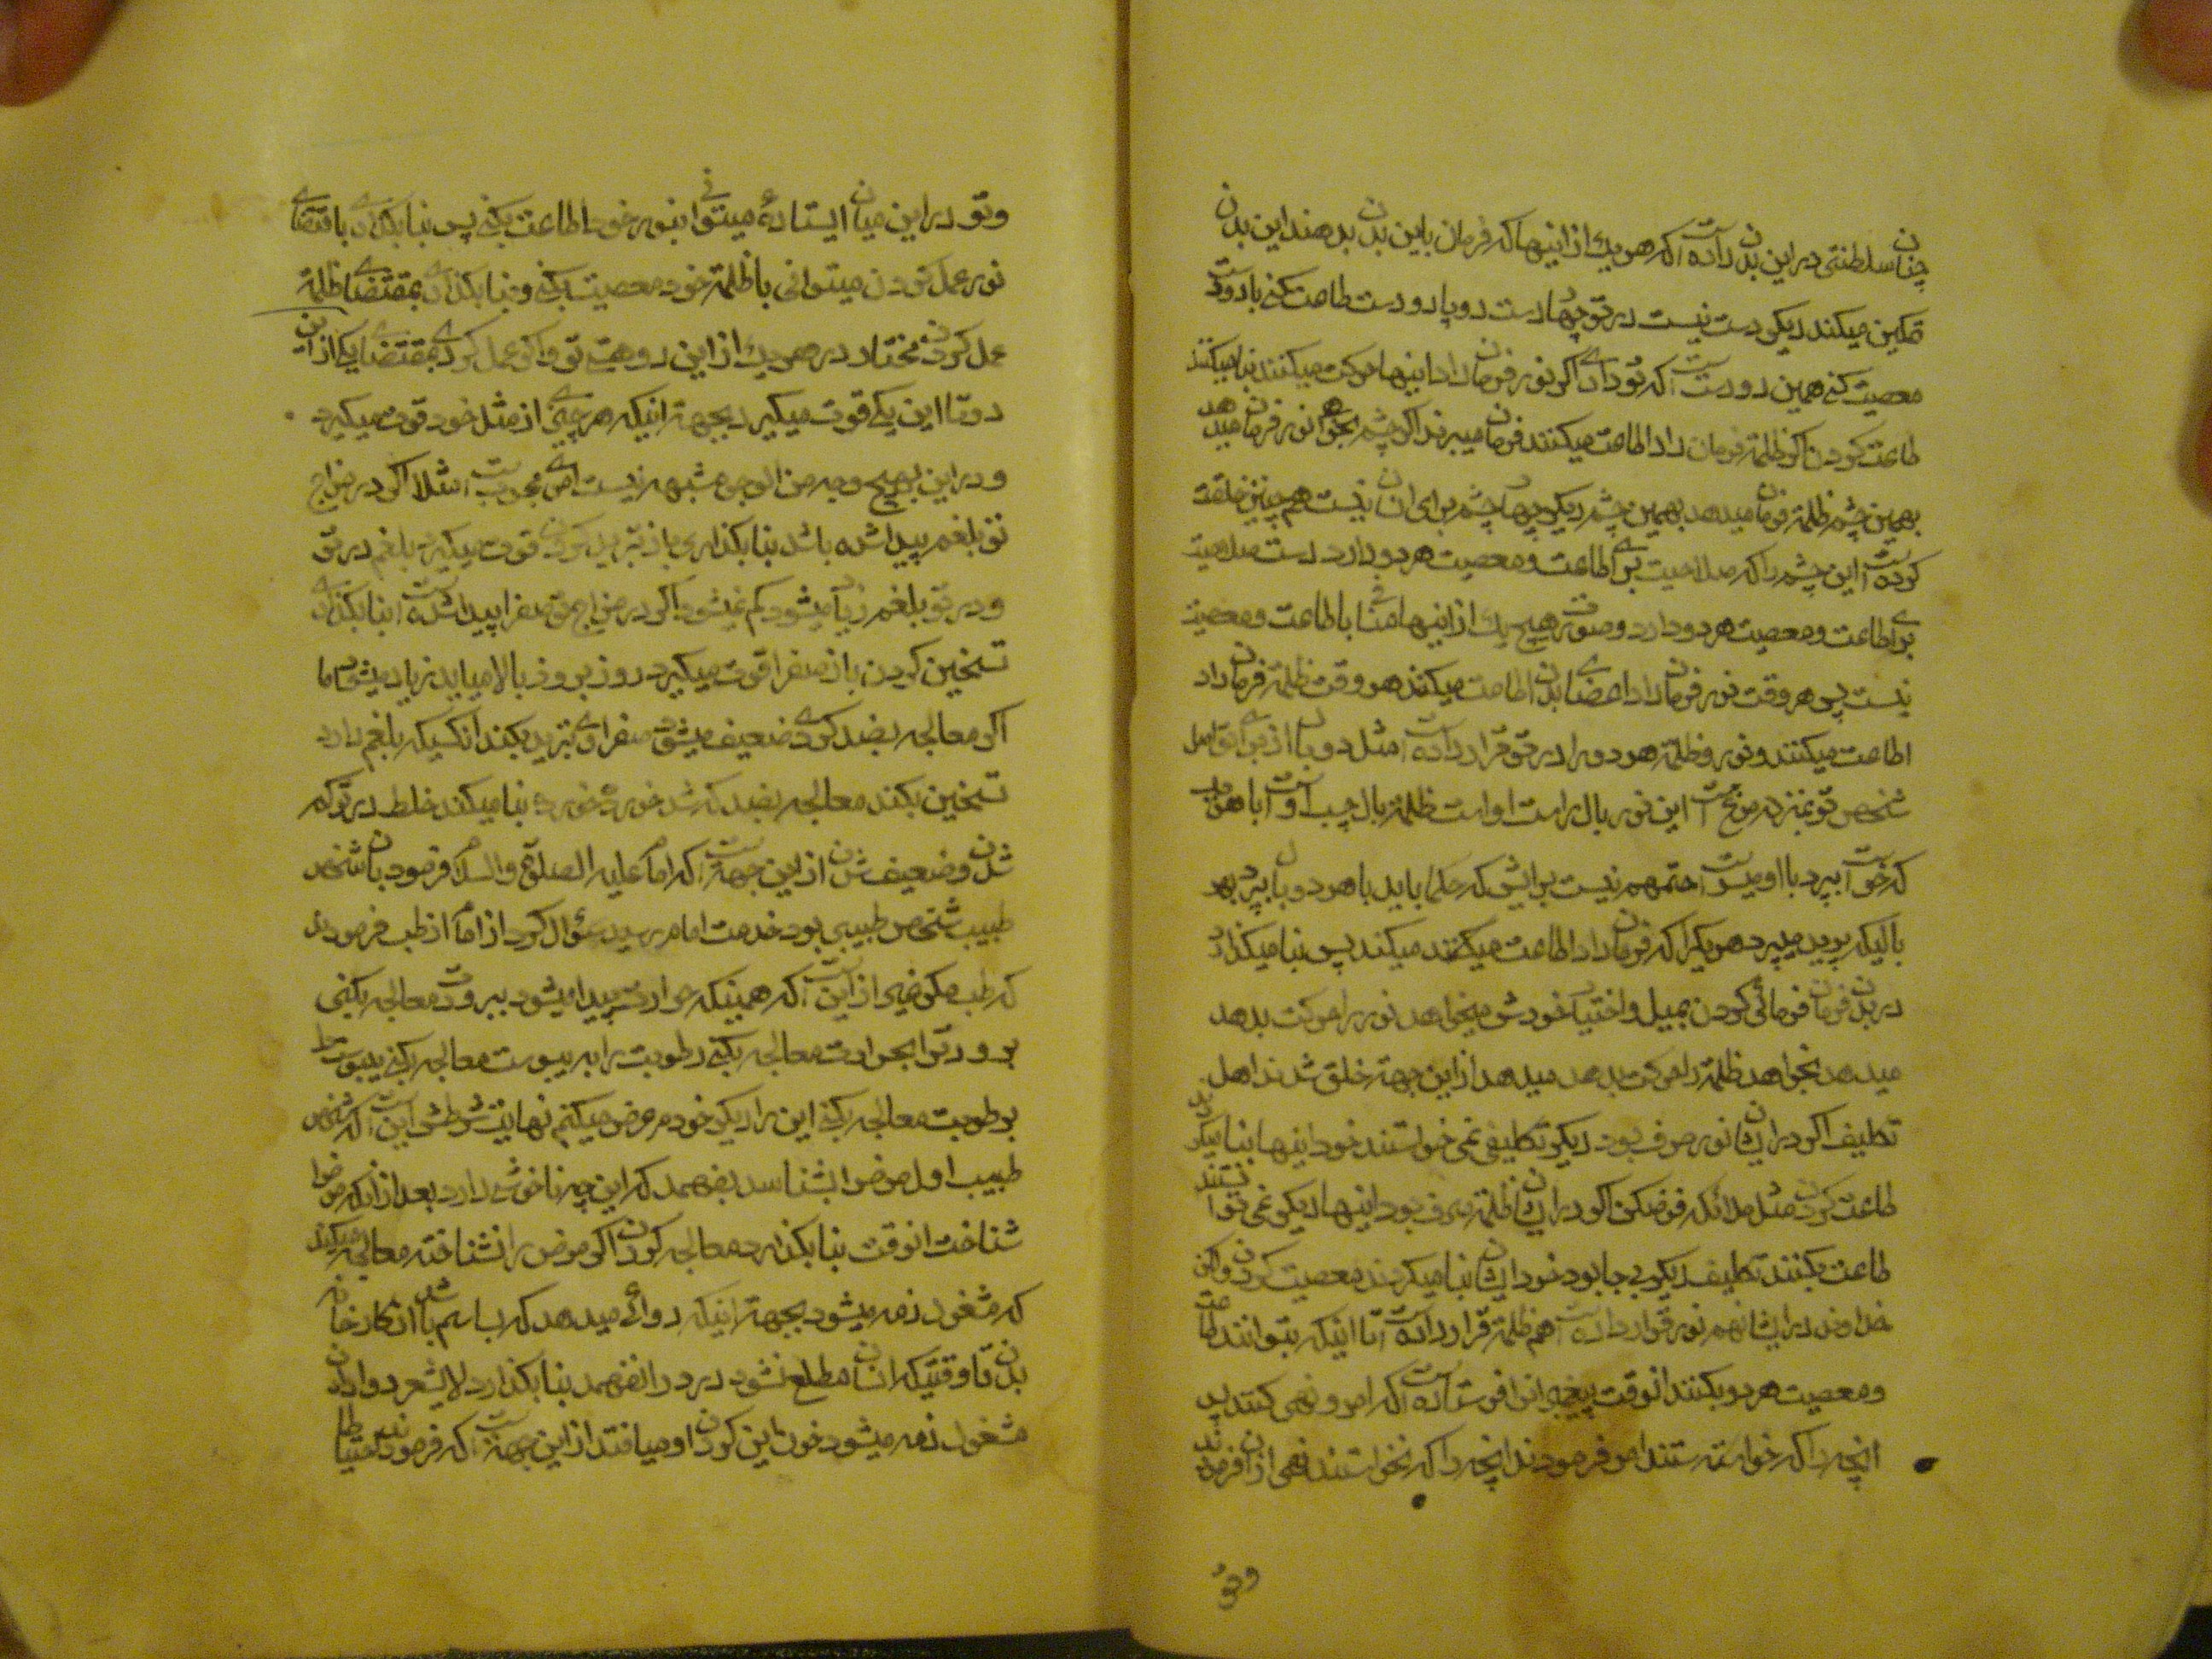 چنان سلطنتی در این بدن داده است که هر یك از اینها که فرمان باین بدن بدهند این بدن
تمکین میکند دیگر دست نیست در تو چهار دست دو پا دو دست طاعت کنی با دو دست
معصیت کنی همین دو دست است که تو داری اگر نور فرمان داد اینها حرکت میکنند بنا میکنند
طاعت کردن اگر ظلمة فرمان داد اطاعت میکنند فرمان میبرند اگر چشم بخواهد نور فرمان میدهد
بهمین چشم ظلمة فرمان میدهد بهمین چشم دیگر چهار چشم برای انسان نیست هم چنین خلقت
کرده است این چشم را که صلاحیت برای اطاعت و معصیت هر دو دارد دست صلاحیت
برای اطاعت و معصیت هر دو دارد و صورت هیچ یك از اینها منافی با طاعت و معصیت
نیست پس هر وقت نور فرمان داد اعضای بدن اطاعت میکنند هر وقت ظلمة فرمان داد
اطاعت میکنند و نور و ظلمة هر دو را در تو قرار داده است مثل دو بال از برای تو اصل
شخص تو بمنزله مرغ است این نور بال راست او است ظلمة بال چپ او است با هر
که خواست بپرد با او میپرد حتم هم نیست برایش که حکما باید با هر دو بال بپرد بهر
بالیکه پرید میپرد هر یکرا که فرمان داد اطاعت میکنند میکند پس بنا میکذارد
در بدن فرمان فرمائی کردن بمیل و اختیار خودش میخواهد نور را حرکت بدهد
میدهد بخواهد ظلمة را حرکت بدهد میدهد از این جهة خلق شدند اهل
تکلیف اگر در ایشان نور صرف بود دیگر تکلیفی نمی خواستند خود اینها بنا میکردند
طاعت کردن مثل ملائکه فرض کن اگر در ایشان ظلمة صرف بود اینها دیگر نمی توانستند
طاعت بکنند تکلیف دیگر بی جا بود خود ایشان بنا میکردند معصیت کردن ولکن
خداوند در ایشان هم نور قرار داده است هم ظلمة قرار داده است تا اینکه بتوانند طاعت
و معصیت هر دو بکنند انوقت پیغمبرانرا فرستاده است که امر و نهی کنند پس
انچه را که خواستستند امر فرمودند انچه را که نخواستند نهی از ان فرمودند
و تو
و تو در این میان ایستادهٔ میتوانی بنور خود اطاعت بکنی پس بنا بکذاری باقتضای
نور عمل کردن میتوانی با ظلمة خود معصیت بکنی و بنا بکذاری بمقتضای ظلمة
عمل کردن مختار در هر یك از این دو هستی تو و اگر عمل کردی بمقتضای یکی از این
دوتا این یکی قوت میگیرد بجهة انیکه هر چیزی از مثل خود قوت میگیرد
و در این بهیچ وجه من الوجوه شبهه نیست امر مجربی است مثلا اگر در مزاج
تو بلغم پیدا شده باشد بنا بکذاری باز تبرید کردن قوت میگیرد بلغم در تو
و در تو بلغم زیاد میشود کم نمیشود اگر در مزاج تو صفرا پیدا شده است بنا بکذاری
تسخین کردن باز صفرا قوت میگیرد روز بروز بالا میاید زیاد میشود اما
اگر معالجه بضد کردی ضعیف میشود صفراوی تبرید بکند انکسیکه بلغم دارد
تسخین بکند معالجه بضد که شد خورده خورده بنا میکند خلط در تو کم
شدن و ضعیف شدن از این جهة است که امام علیه الصلوة والسلام فرمود بان شخص
طبیب شخص طبیبی بود خدمت امام رسید سئوال کرد از امام از طب فرمودند
که طب مگر غیر از این است که همینیکه حرارت پیدا میشود ببرودت معالجه بکنی
برودترا بحرارت معالجه بکنی رطوبت را به یبوست معالجه بکنی یبوست را
برطوبت معالجه بکنی این را دیگر خودم عرض میکنم نهایت شرطش این است که شخص
طبیب اول مرض را بشناسد بفهمد که این چه ناخوشی دارد بعد از انکه مرض را
شناخت انوقت بنا بکذارد معالجه کردن اگر مرض را نشناخته معالجه میکند
که مشغول ذمه میشود بجهة انیکه دوائی میدهد که باسم باشد از کارخانه
بدن تا وقتیکه انسان مطلع نشود درد را نفهمد بنا بکذارد لایشعر دوا دادن
مشغول ذمه میشود خون این گردن او میافتد از این جهة است که فرمودند احتیاط